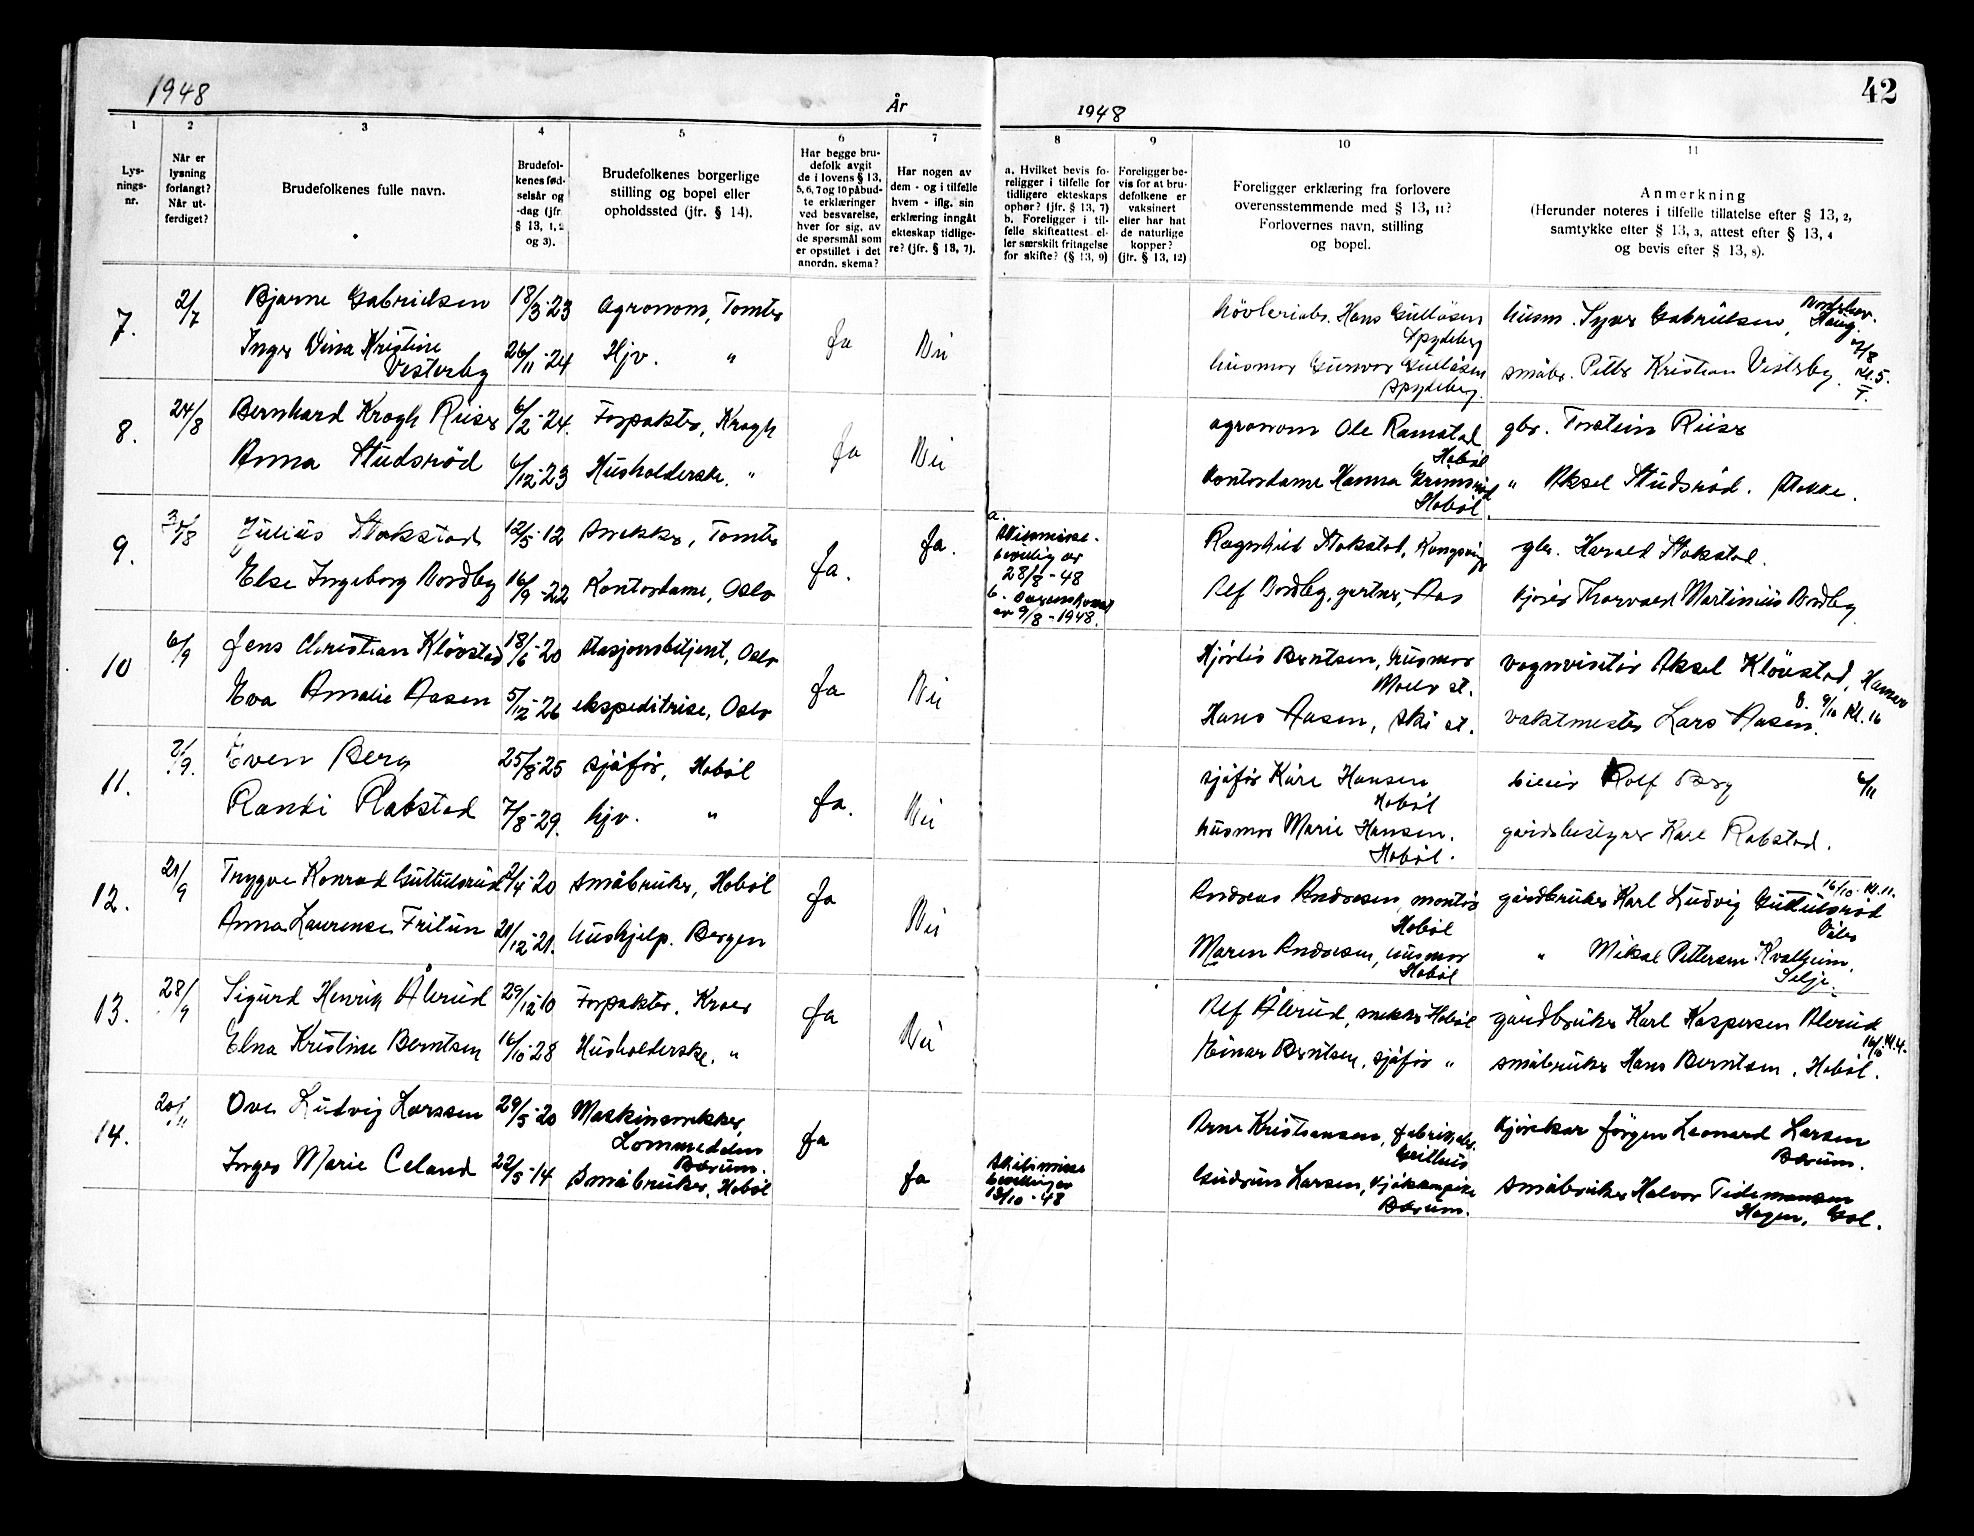 42
1948
År
1948
1
2
3
4
5
6
7
8
9
10
11
Lys-
nings-
nr.
Når er
lysning
forlangt?
Når ut-
ferdiget?
Brudefolkenes fulle navn.
Brudefol-
kenes fød-
selsår og
-dag (jfr.
§ 13, 1, 2
og 3).
Brudefolkenes borgerlige
stilling og bopel eller
opholdssted (jfr. § 14).
Har begge bru-
defolk avgit
de i lovens § 13,
5, 6, 7 og 10 påbud-
te erklæringer
ved besvarelse,
hver for sig, av
de spørsmål som
er opstillet i det
anordn. skema?
Har nogen av
dem - og i tilfelle
hvem - iflg. sin
erklæring inngått
ekteskap tidlige-
re? (jfr. § 13, 7).
a. Hvilket bevis fo-
religger i tilfelle for
tidligere ekteskaps
ophør? (jfr. § 13, 7)
b. Foreligger i til-
felle skifteattest el-
ler særskilt fritagelse
for skifte? (§ 13, 9)
Foreligger be-
vis for at bru-
defolkene er
vaksinert
eller har hat
de naturlige
kopper?
(jfr. § 13, 12)
Foreligger erklæring fra forlovere
overensstemmende med § 13, 11?
Forlovernes navn, stilling
og bopel.
Anmerkning
(Herunder noteres i tilfelle tillatelse efter § 13, 2,
samtykke efter § 13, 3, attest efter § 13, 4
og bevis efter § 13, 8).
7.
2/7
Bjarne Gabrielsen
18/3-23
Agronom, Tomter
Ja
Nei
Hans Gulläsen
Spydeberg
husm. Syver Gabrielsen,
Haug.
Inger Dina Kristine
Vesterby
26/11-24
Hjv. "
husmor Gunvor Gulläsen
Spydeberg.
småbr. Petter Kristian Vesterby.
Kl. 5.
8.
24/8
Bernhard Krogh Riiser
6/2-24.
Forpakter, Krogh
Ja
Nei
agronom Ole Ramstad
Hobøl
gbr. Torstein Riiser
Anna Studsrød
6/12-23
Husholderske. "
Kontordame Hanna Grimsrud
Hobøl.
" Aksel Studsrød. Stokke.
9.
30/8
Julius Stokstad
12/5-12
Snekker, Tomter
Ja.
Ja.
a.
Skilsmisse-
bevillig av
28/8-48
b.
av 9/8-1948.
Ragnhild Stokstad, Kongsvinger
gbr. Harald Stokstad.
Else Ingeborg Nordby
16/9-22
Kontordame, Oslo
Alf Nordby, gartner, Aas
kjører Thorvald Martinius Nordby
10
6/9
Jens Christian Kløvstad
18/6-20
Stasjonsbetjent, Oslo
Ja
Nei
Hjørdis Berntsen, husmor
Moelv st.
vognvisitør Aksel Kløvstad, Hamar
Eva Amalie Aasen
5/12-26
ekspeditrise, Oslo
Hans Aasen, Ski st.
vaktmester Lars Aasen.
9/10 Kl. 16
11.
2/9.
Even Berg
25/8-25
sjåfør, Hobøl
Ja.
Nei
sjåfør Kåre Hansen
Hobøl
Rolf Berg
6/11
Randi Rabstad
7/8-29.
hjv. "
husmor Marie Hansen.
Hobøl.
gårdsbestyrer Kåre Rabstad.
12.
21/9
Trygve Konrad Guttulsrud
småbruker, Hobøl
Ja
Nei
Andreas Andresen, montør
Hobøl
16/10 Kl. 11.
gårdbruker Karl Ludvig Guttulsrød
Våler
Anna Laurense Fritun
21/12-21.
Hushjelp. Bergen
Maren Andresen, husmor
Hobøl
" Mikal Pettersen Kvalheim,
Selje.
13.
28/9
Sigurd Henrik Ålerud
29/12-10
Forpakter. Kroer
Ja
Nei
Alf Ålerud, snekker Hobøl
gårdbruker Karl Kaspersen Ålerud
Elna Kristine Berntsen
16/10-28
Husholderske. "
Einar Berntsen, sjåfør "
småbruker Hans Berntsen, Hobøl.
16/10 Kl. 4.
14.
20/11
Ove Ludvig Larssen
29/5-20
Maskinsnekker
Lommedalen
Bærum.
Ja
Arne Kristiansen, fabrikkarb.
kjørekar Jörgen Leonard Larsen
Bærum.
Inger Marie Celand
22/5-14
Småbruker, Hobøl
Ja
Skilsmisse
bevillinger
13/10-48
Gudrun Larsen, kjøkkenpike
Bærum.
småbruker Halvor Tidemansen
Hagen, Gol.